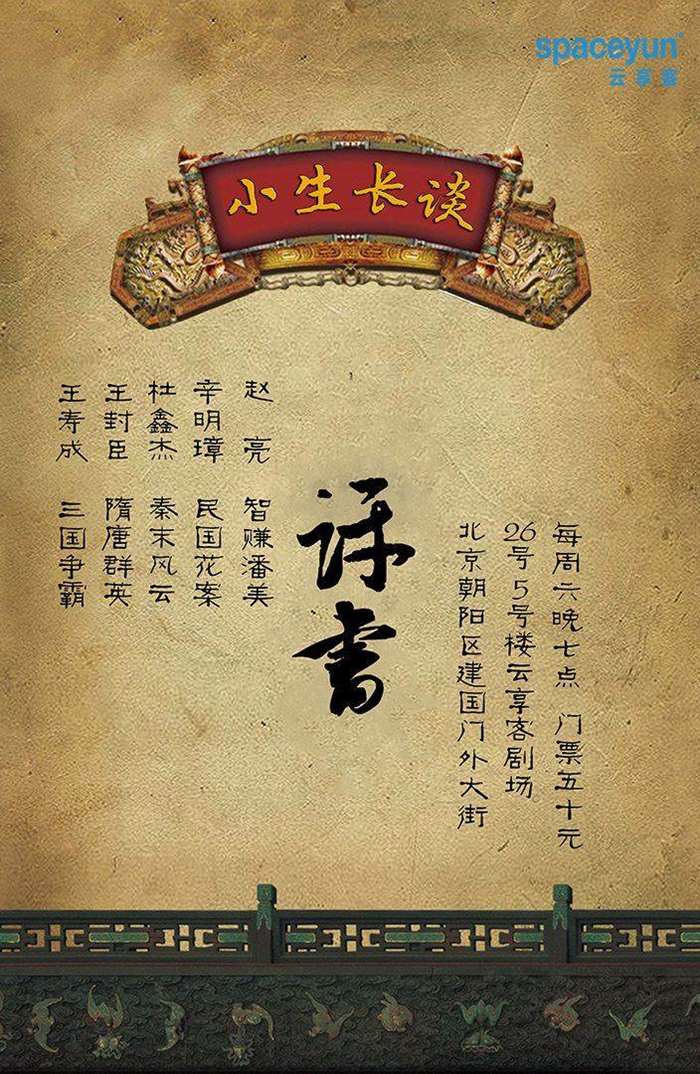 spaceyun
云享客
小生长谈
王寿成 三国争霸
王封臣 隋唐群英
杜鑫杰 秦末风云
辛明璋 民国花案
赵亮 智赚潘美
评書
北京朝阳区建国门外大街
26号5号楼云享客剧场
每周六晚七点 门票五十元